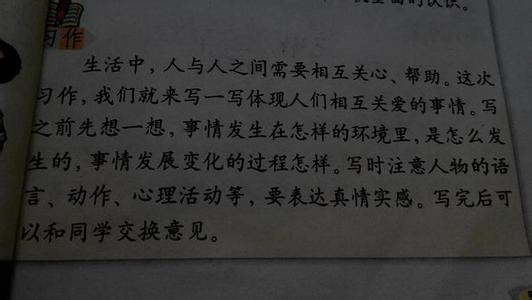 全面的认识。
习作
生活中，人与人之间需要相互关心、帮助。这次
习作，我们就来写一写体现人们相互关爱的事情。写
之前先想一想，事情发生在怎样的环境里，是怎么发
生的，事情发展变化的过程怎样。写时注意人物的语
言、动作、心理活动等，要表达真情实感。写完后可
以和同学交换意见。